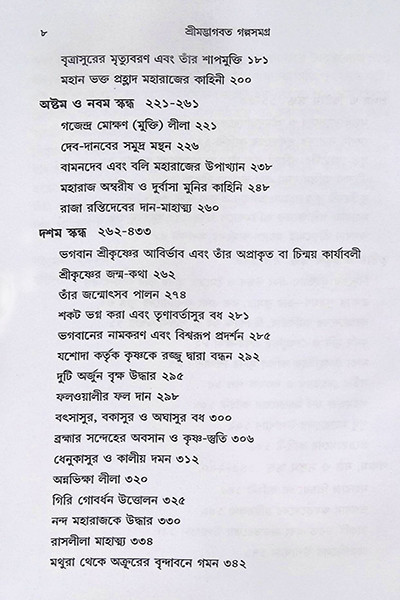 ৮ শ্রীমদ্ভাগবত গল্পসমগ্র
বৃত্রাসুরের মৃত্যুবরণ এবং তাঁর শাপমুক্তি ১৮১
মহান ভক্ত প্রহ্লাদ মহারাজের কাহিনী ২০০
অষ্টম ও নবম স্কন্ধ ২২১-২৬১
গজেন্দ্র মোক্ষণ (মুক্তি) লীলা ২২১
দেব-দানবের সমুদ্র মন্থন ২২৬
বামনদেব এবং বলি মহারাজের উপাখ্যান ২৩৮
মহারাজ অম্বরীষ ও দুর্বাসা মুনির কাহিনি ২৪৮
রাজা রন্তিদেবের দান-মাহাত্ম্য ২৬০
দশম স্কন্ধ ২৬২-৪৩৩
ভগবান শ্রীকৃষ্ণের আবির্ভাব এবং তাঁর অপ্রাকৃত বা চিন্ময় কার্যাবলী
শ্রীকৃষ্ণের জন্ম-কথা ২৬২
তাঁর জন্মোৎসব পালন ২৭৪
শকট ভগ্ন করা এবং তৃণাবর্তাসুর বধ ২৮১
ভগবানের নামকরণ এবং বিশ্বরূপ প্রদর্শন ২৮৫
যশোদা কর্তৃক কৃষ্ণকে রজ্জু দ্বারা বন্ধন ২৯২
দুটি অর্জুন বৃক্ষ উদ্ধার ২৯৫
ফলওয়ালীর ফল দান ২৯৮
বৎসাসুর, বকাসুর ও অঘাসুর বধ ৩০০
ব্রহ্মার সন্দেহের অবসান ও কৃষ্ণ-স্তুতি ৩০৬
ধেনুকাসুর ও কালীয় দমন ৩১২
অন্নভিক্ষা লীলা ৩২০
গিরি গোবর্ধন উত্তোলন ৩২৫
নন্দ মহারাজকে উদ্ধার ৩৩০
রাসলীলা মাহাত্ম্য ৩৩৪
মথুরা থেকে অক্রূরের বৃন্দাবনে গমন ৩৪২